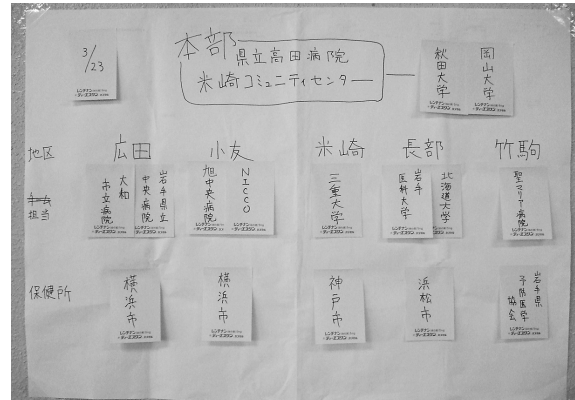 3/23
本部
県立高田病院
米崎コミュニティセンター
秋田大学
岡山大学
地区
広田
小友
米崎
長部
竹駒
担当
大和
市立病院
岩手県立
中央病院
旭中央病院
NICCO
三重大学
岩手
医科大学
北海道大学
聖マリアー病院
保健所
横浜市
横浜市
神戸市
浜松市
岩手県
予防医学
協会